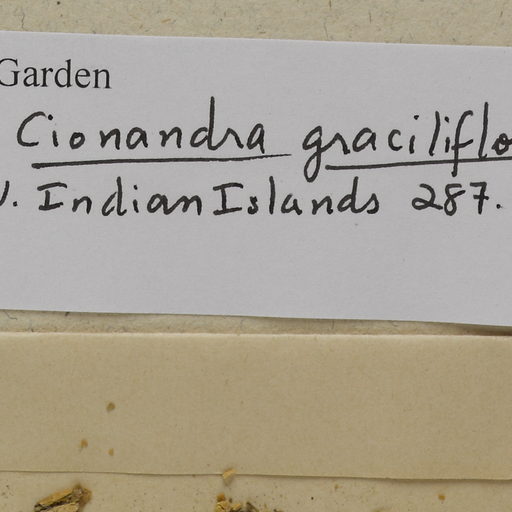 Garden
Cionandra graciliflo
. Indian Islands 287.